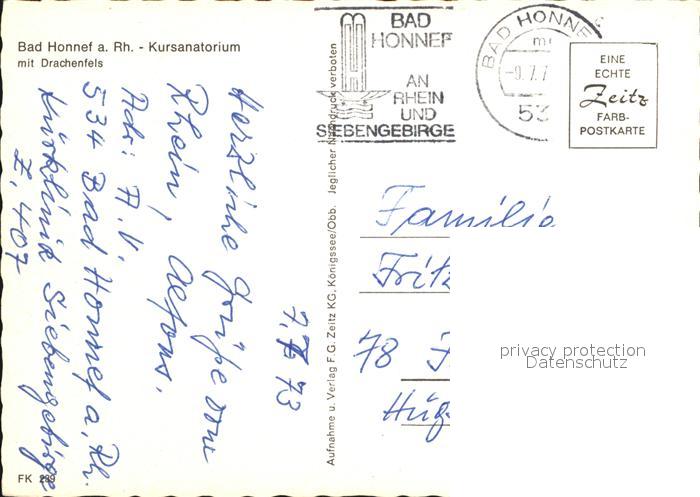 Bad Honnef a. Rh. - Kursanatorium
mit Drachenfels
BAD
HONNEF
AN
RHEIN
UND
SIEBENGEBIRGE
BAD HONNEF
-9.7.7
53
EINE
ECHTE
Zeitz
FARB-
POSTKARTE
7.7.73
Herzliche Grüße vom
Rhein, Alfons.
Adr: A. V.
534 Bad Honnef a. Rh.
Kurklinik Siebengebirge
Z. 407
Aufnahme u. Verlag F.G. Zeitz KG, Königssee/Obb. Jeglicher Nachdruck verboten
Familie
Fritz
78 F
Hüg
privacy protection
Datenschutz
FK 289